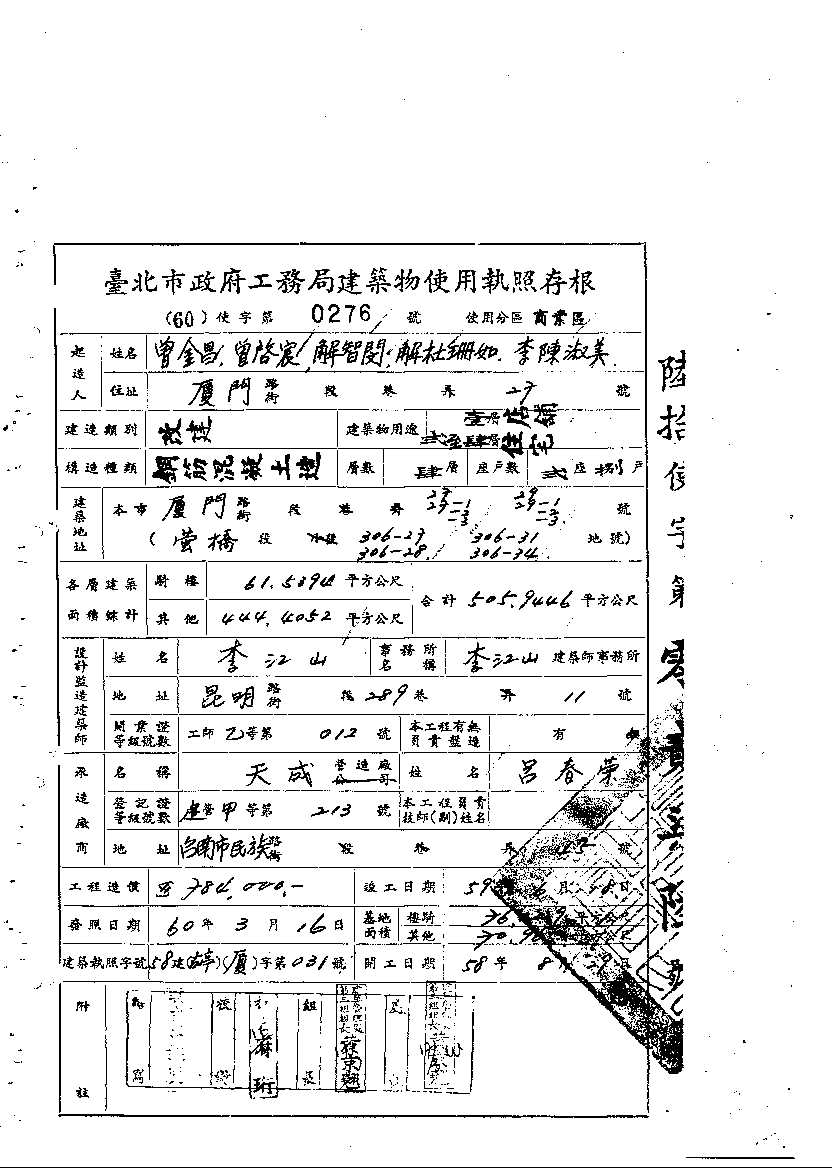 臺北市政府工務局建築物使用執照存根
(60)使字第 0276 號 使用分區 商業區
起造人 姓名 曾金昌 曾啓宸 解智閔 解杜珊如 李陳淑美
住址 廈門 路街 段 巷 弄 27 號
建造類別 改建 建築物用途 壹層店舖 貳至肆層住宅
構造種類 鋼筋混凝土造 層數 肆層 座戶數 貳座捌戶
建築地址 本市 廈門 路街 段 巷 弄 號
(螢橋 段 小段 306-27 306-28 306-31 306-34 地號)
各層建築面積總計 騎樓 61.5394 平方公尺 合計 505.9446 平方公尺
其他 444.4052 平方公尺
設計監造建築師 姓名 李江山 事務所名稱 李江山 建築師事務所
地址 昆明 路街 段 289 巷 弄 11 號
開業證等級號數 工師乙等第 012 號 本工程有無負責監造 有
承造廠商 名稱 天成 營造廠公司 姓名 呂春榮
登記證等級號數 營甲等第 213 號 本工程負責技師(副)姓名
地址 台南市民族 路街 段 巷 弄 號
工程造價 784,000.- 竣工日期 59 6月 日
發照日期 60年3月16日 基地面積 騎樓 平方公尺
其他
建築執照字號 58建(廈)字第031號 開工日期 58年8月 日
附註
陸拾使字第